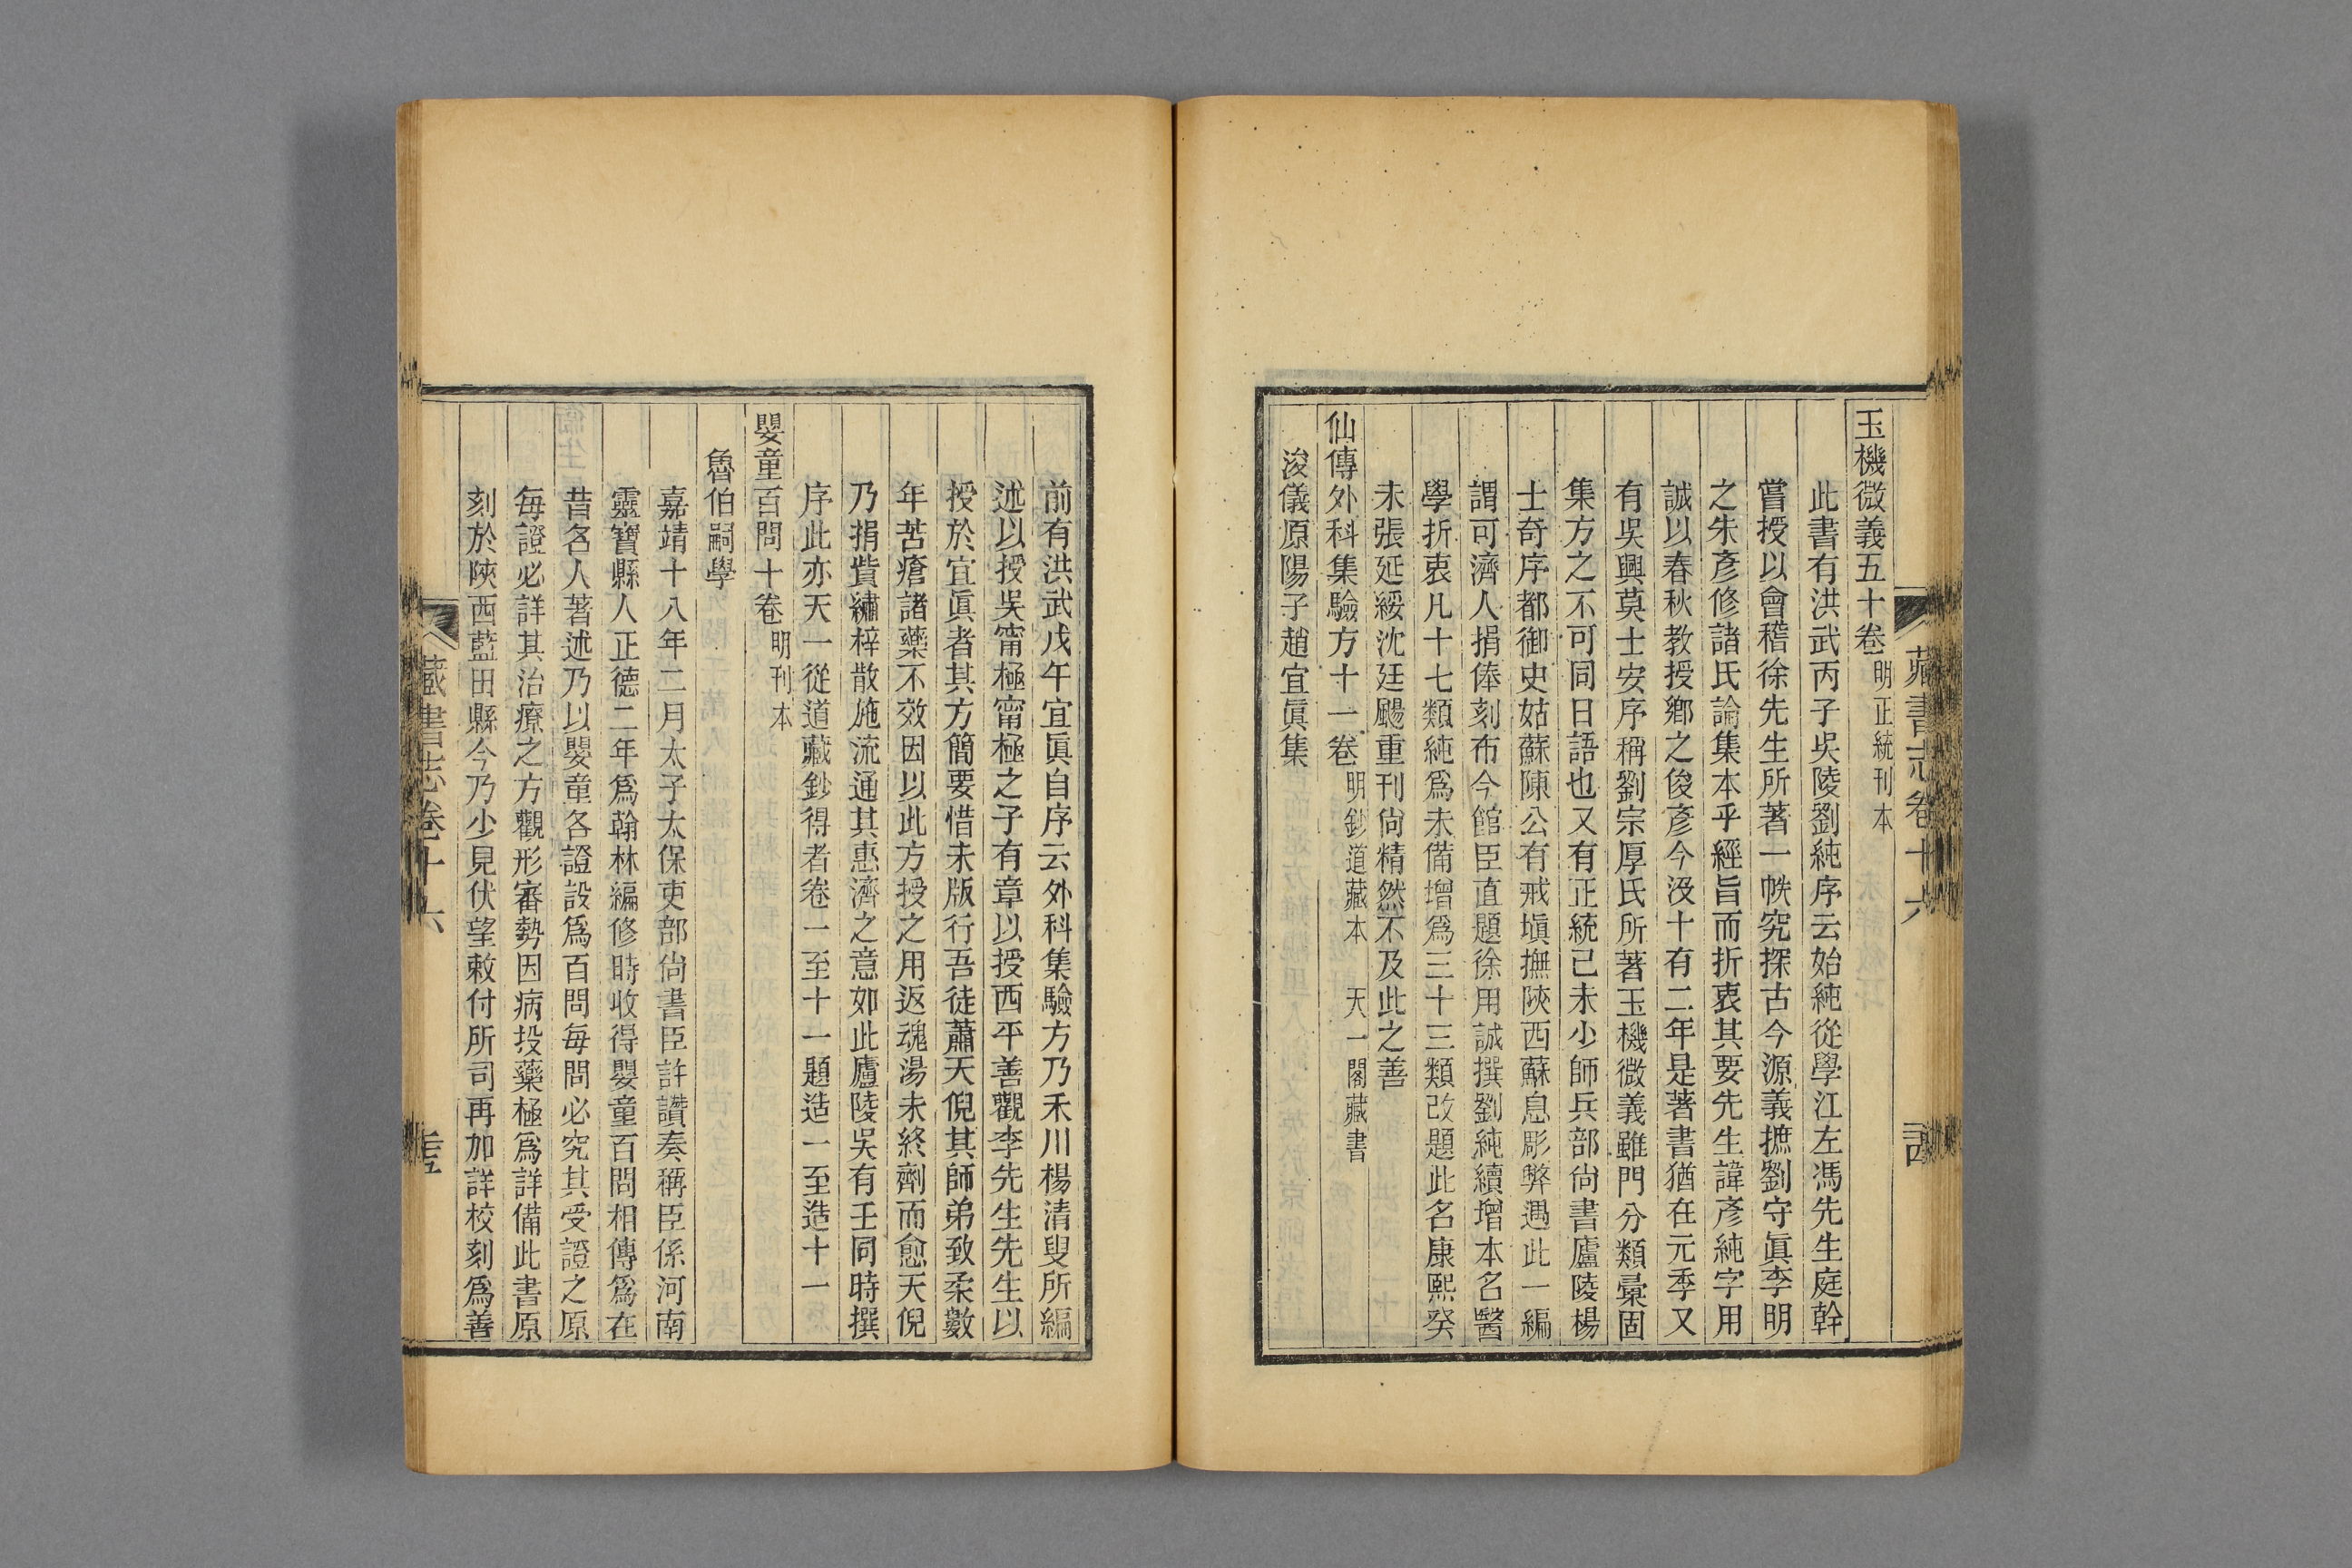 藏書志卷十六
玉機微義五十卷 明正統刊本
此書有洪武丙子吳陵劉純序云始純從學江左馮先生庭幹
嘗授以會稽徐先生所著一帙究探古今源義摭劉守眞李明
之朱彥修諸氏論集本乎經旨而折衷其要先生諱彥純字用
誠以春秋教授鄉之俊彥今沒十有二年是著書猶在元季又
有吳興莫士安序稱劉宗厚氏所著玉機微義雖門分類彙固
集方之不可同日語也又有正統己未少師兵部尙書廬陵楊
士奇序都御史姑蘇陳公有戒塡撫陝西蘇息彫弊遇此一編
謂可濟人捐俸刻布今館臣直題徐用誠撰劉純續增本名醫
學折衷凡十七類純爲未備增爲三十三類改題此名康熙癸
未張延綏沈廷颺重刊尙精然不及此之善
仙傳外科集驗方十一卷 明鈔道藏本 天一閣藏書
浚儀原陽子趙宜眞集
前有洪武戊午宜眞自序云外科集驗方乃禾川楊清叟所編
述以授吳甯極甯極之子有章以授西平善觀李先生先生以
授於宜眞者其方簡要惜未版行吾徒蕭天倪其師弟致柔數
年苦瘡諸藥不效因以此方授之用返魂湯未終劑而愈天倪
乃捐貲繡梓散施流通其惠濟之意如此廬陵吳有壬同時撰
序此亦天一從道藏鈔得者卷一至十一題造一至造十一
嬰童百問十卷 明刊本
魯伯嗣學
嘉靖十八年二月太子太保吏部尙書臣許讚奏稱臣係河南
靈寶縣人正德二年爲翰林編修時收得嬰童百問相傳爲在
昔名人著述乃以嬰童各證設爲百問每問必究其受證之原
每證必詳其治療之方觀形審勢因病投藥極爲詳備此書原
刻於陝西藍田縣今乃少見伏望敕付所司再加詳校刻爲善
藏書志卷十六